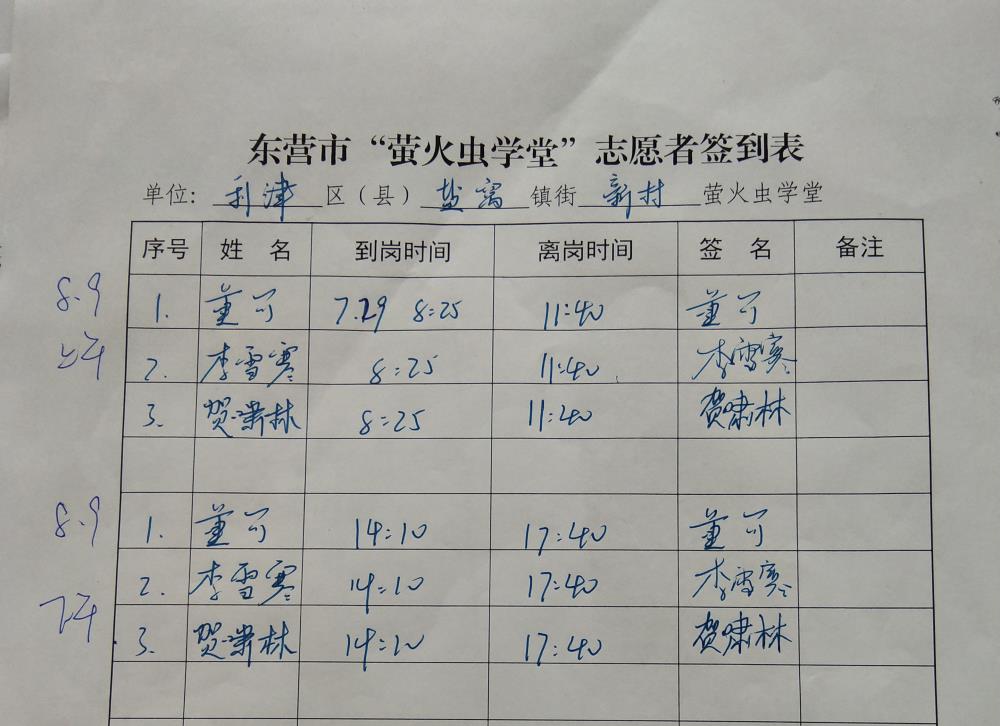 东营市“萤火虫学堂”志愿者签到表
单位: 利津 区(县) 盐窝 镇街 新村 萤火虫学堂
序号 姓 名 到岗时间 离岗时间 签 名 备注
8.9 上午
1. 董可 7.29 8:25 11:40 董可
2. 李雪寒 8:25 11:40 李雪寒
3. 贺啸林 8:25 11:40 贺啸林
8.9 下午
1. 董可 14:10 17:40 董可
2. 李雪寒 14:10 17:40 李雪寒
3. 贺啸林 14:10 17:40 贺啸林